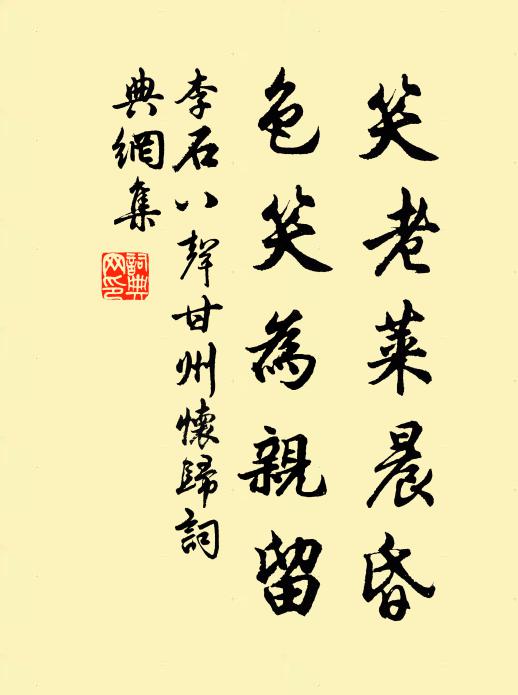 笑老萊晨昏
色笑為親留
李石八聲甘州懷歸詞
典網集
詞典網印